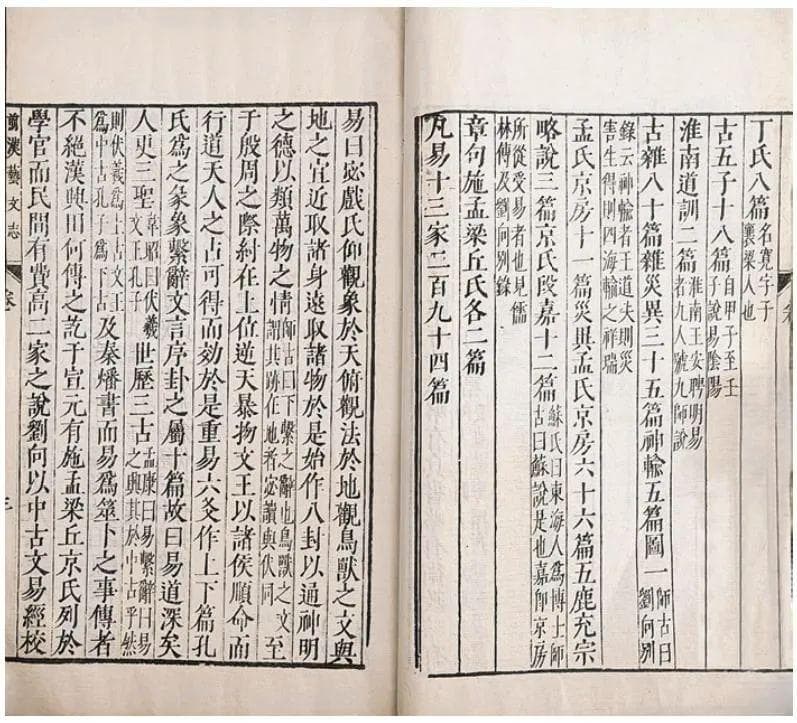 丁氏八篇名寛字子襄梁人也
古五子十八篇自甲子至壬子說易隂陽
淮南道訓二篇淮南王安聘明易者九人號九師說
古雜八十篇雜災異三十五篇神輸五篇圖一師古曰劉向别
錄云神輸者王道失則災害生得則四海輸之祥瑞
孟氏京房十一篇災異孟氏京房六十六篇五鹿充宗
略說三篇京氏段嘉十二篇蘇氏曰東海人爲博士師古曰蘇說是也嘉即京房
所從受易者也見儒林傳及劉向别錄
章句施孟梁丘氏各二篇
凡易十三家二百九十四篇
易曰宓戲氏仰觀象於天俯觀法於地觀鳥獸之文與
地之宜近取諸身遠取諸物於是始作八卦以通神明
之德以類萬物之情師古曰下繫之辭也鳥獸之文謂其跡在地者宓讀與伏同至
于殷周之際紂在上位逆天暴物文王以諸侯順命而
行道天人之占可得而効於是重易六爻作上下篇孔
氏爲之彖象繫辭文言序卦之屬十篇故曰易道深矣
人更三聖韋昭曰伏羲文王孔子世歷三古孟康曰易繫辭曰易之興其於中古乎然
則伏羲爲上古文王爲中古孔子爲下古及秦燔書而易爲筮卜之事傳者
不絕漢興田何傳之訖于宣元有施孟梁丘京氏列於
學官而民間有費高二家之說劉向以中古文易經校
前漢藝文志 卷 三